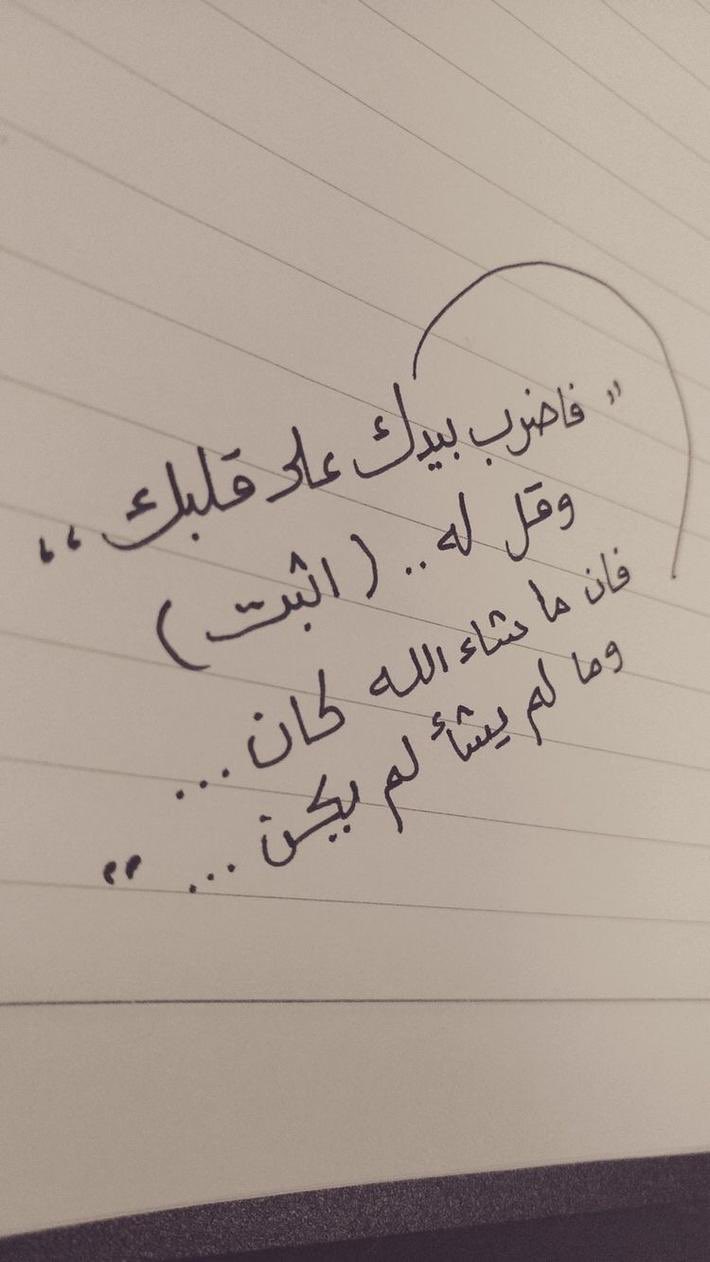 " فاضرب بيدك على قلبك ،،
وقل له .. ( اثبت )
فان ما شاء الله كان ...
وما لم يشأ لم يكن ... "